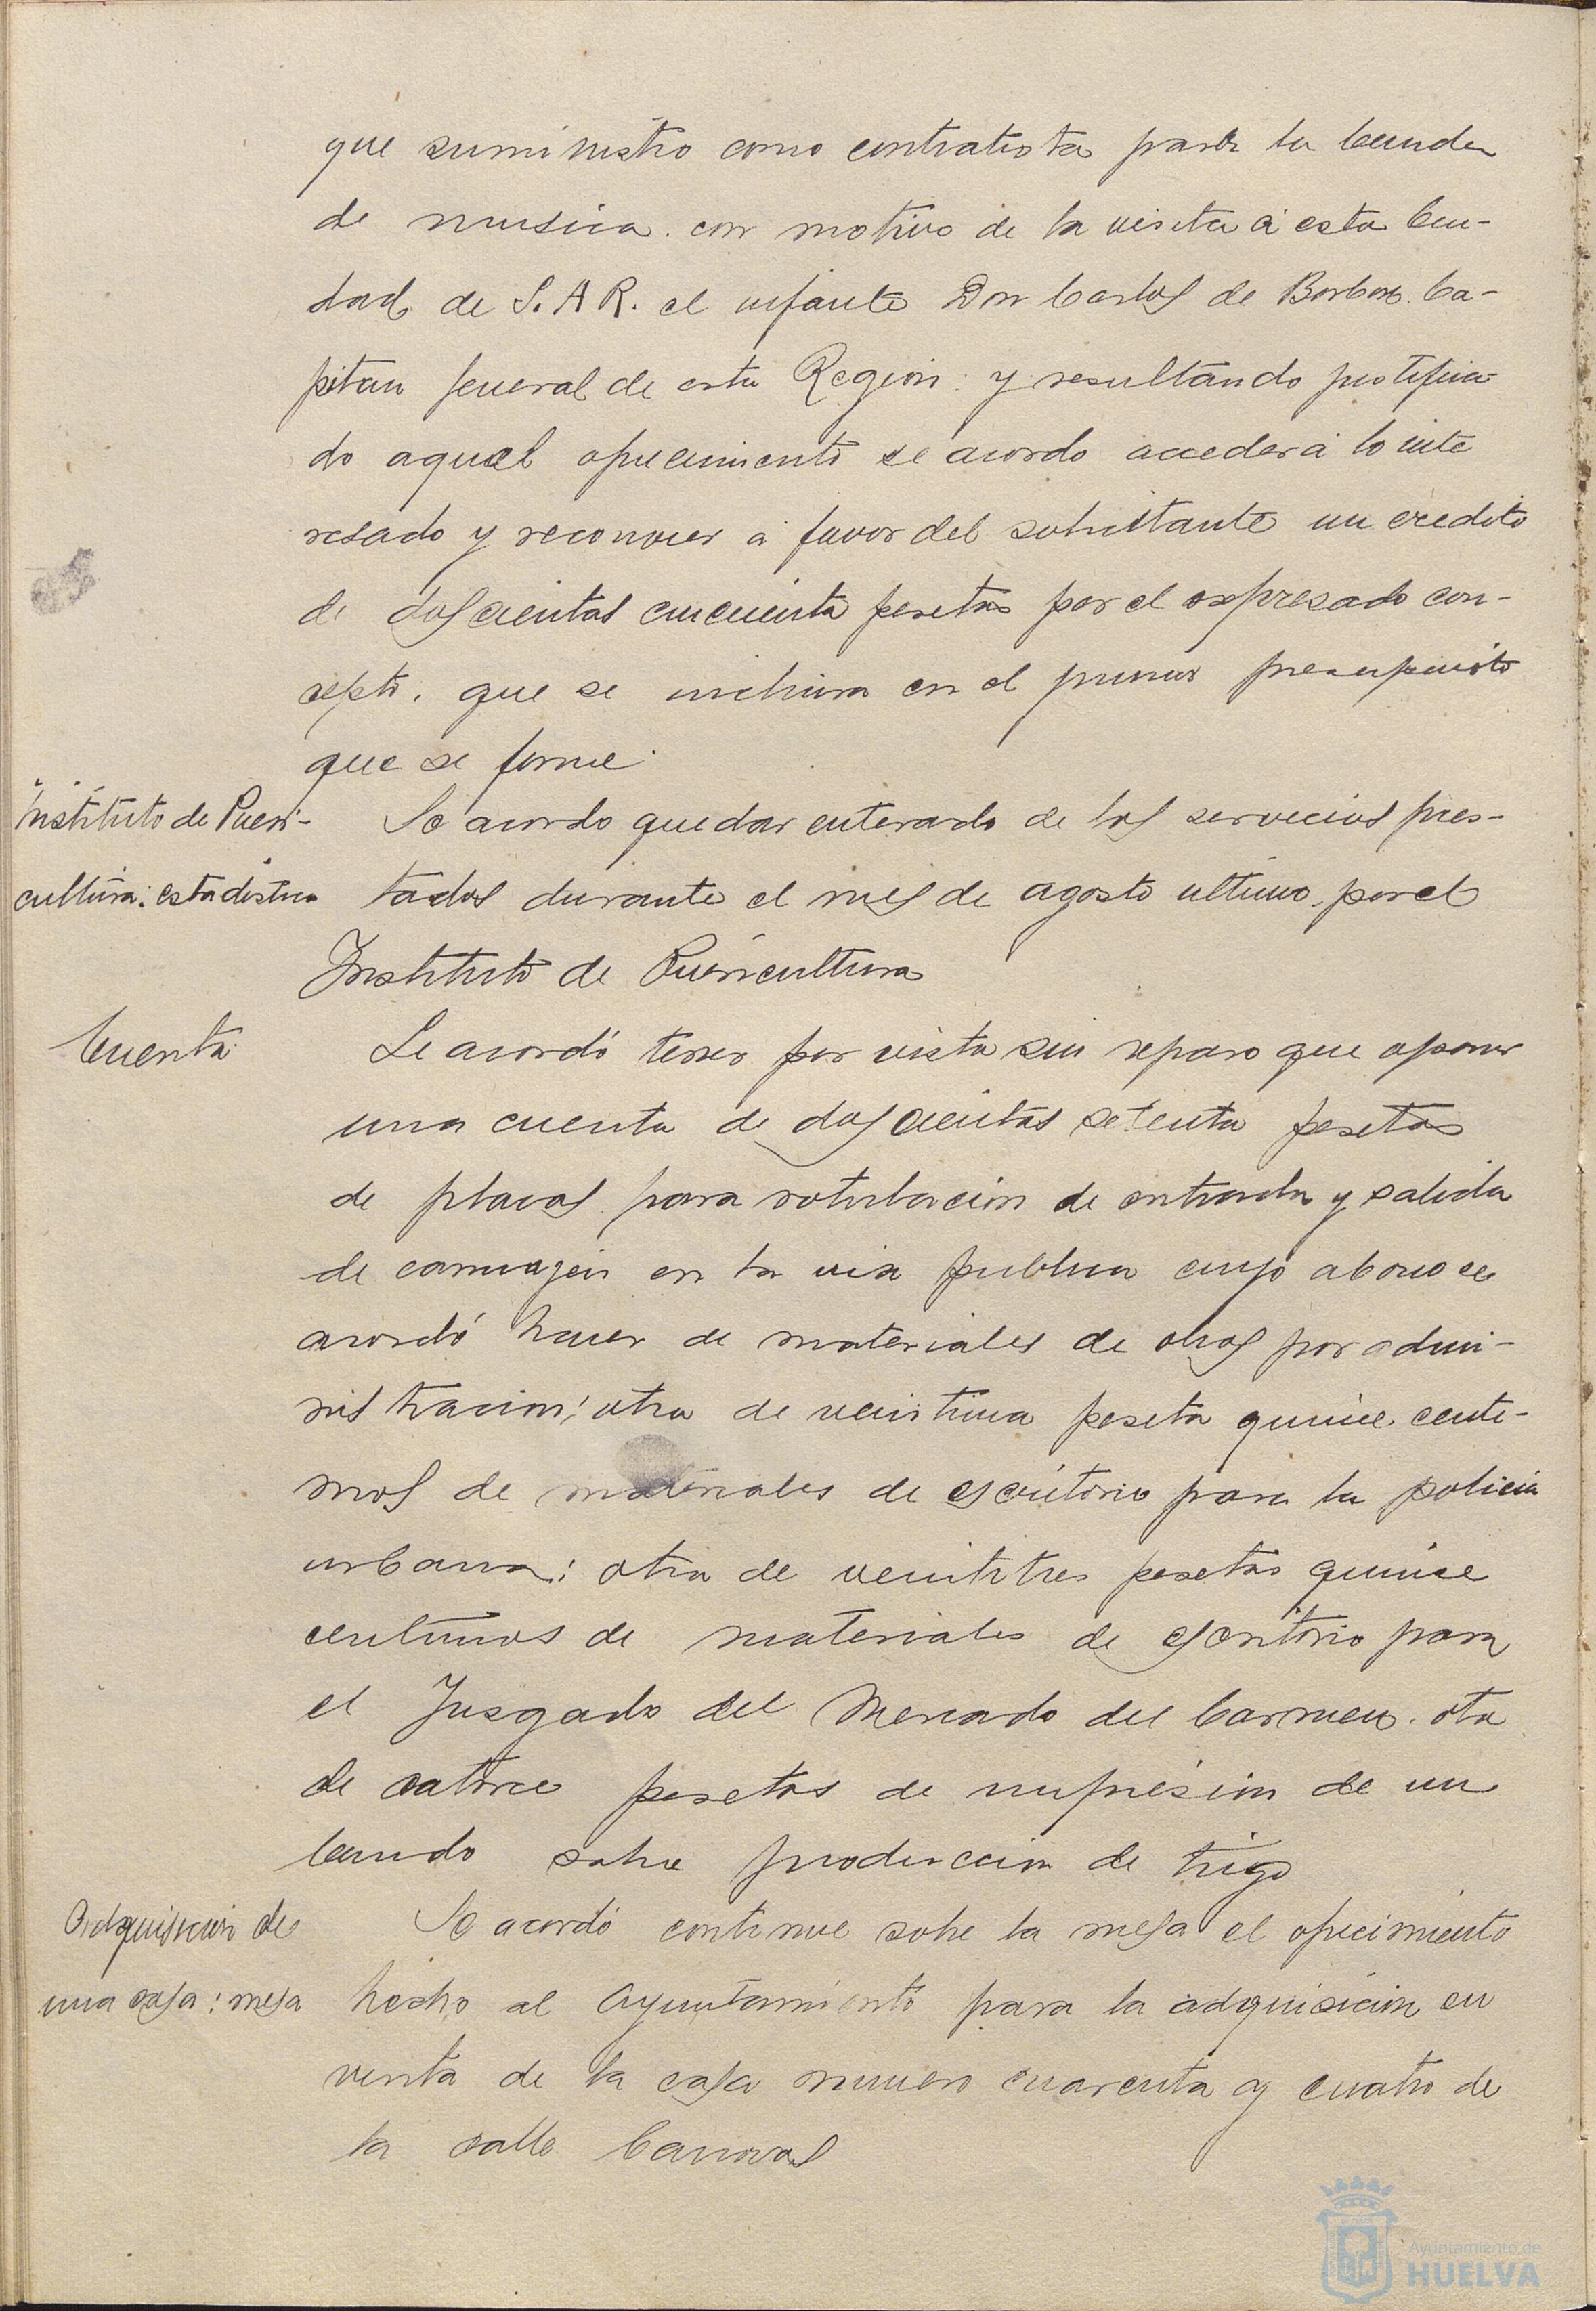 que suministro como contratista para la banda
de musica. con motivo de la visita á esta Ciu-
dad de S. A R. el infante Don Carlos de Borbon Ca-
pitan general de esta Region y resultando justifica-
do aquel ofrecimiento se acordo acceder á lo inte
resado y reconocer á favor del solicitante un credito
de doscientas cincuenta pesetas por el expresado con-
cepto. que se incluira en el primer presupuesto
que se forme.
Instituto de Pueri-
cultura: estadistica
Se acordo quedar enterado de los servicios pres-
tados durante el mes de agosto ultimo, por el
Instituto de Puericultura
Cuenta
Se acordó tener por vista sin reparo que oponer
una cuenta de doscientas setenta pesetas
de placas para rotulacion de entrada y salida
de carruajes en la via publica cuyo abono se
acordó hacer de materiales de obras por admi-
nistracion; otra de veintiuna peseta quince centi-
mos de materiales de escritorio para la policia
urbana; otra de veintitres pesetas quince
centimos de materiales de escritorio para
el Jusgado del Mercado del Carmen. otra
de catorce pesetas de impresion de un
bando sobre produccion de trigo
Adquisicion de
una casa: mesa
Se acordó continue sobre la mesa el ofrecimiento
hecho al Ayuntamiento para la adquisicion en
venta de la casa numero cuarenta y cuatro de
la calle Canovas
Ayuntamiento de
HUELVA